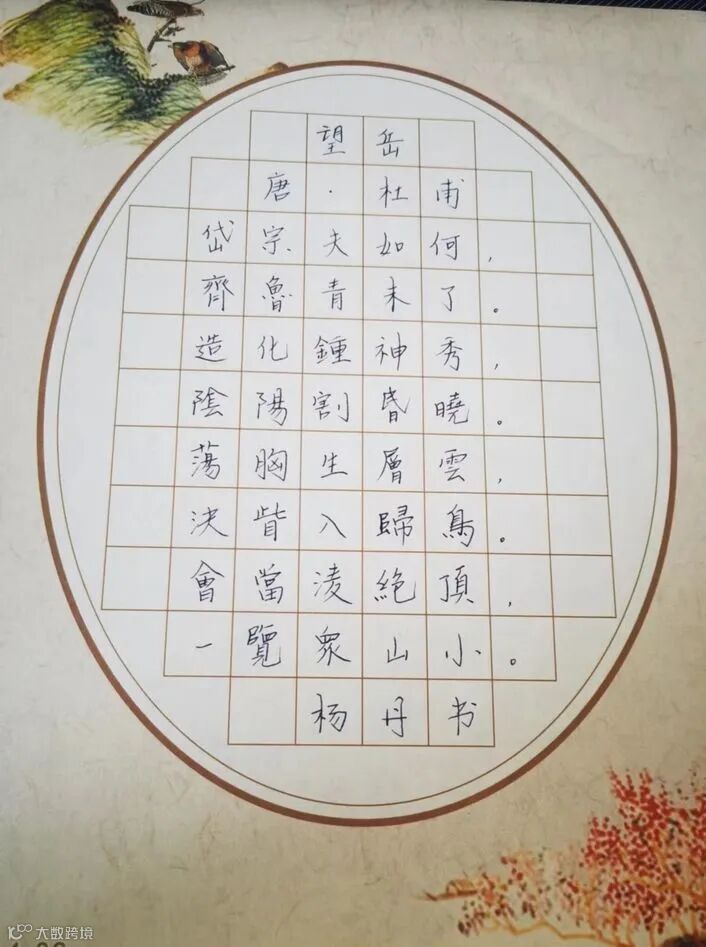 望岳
唐·杜甫
岱宗夫如何，
齊魯青未了。
造化鍾神秀，
陰陽割昏曉。
蕩胸生層雲，
決眥入歸鳥。
會當凌絕頂，
一覽眾山小。
杨丹书
大数跨境